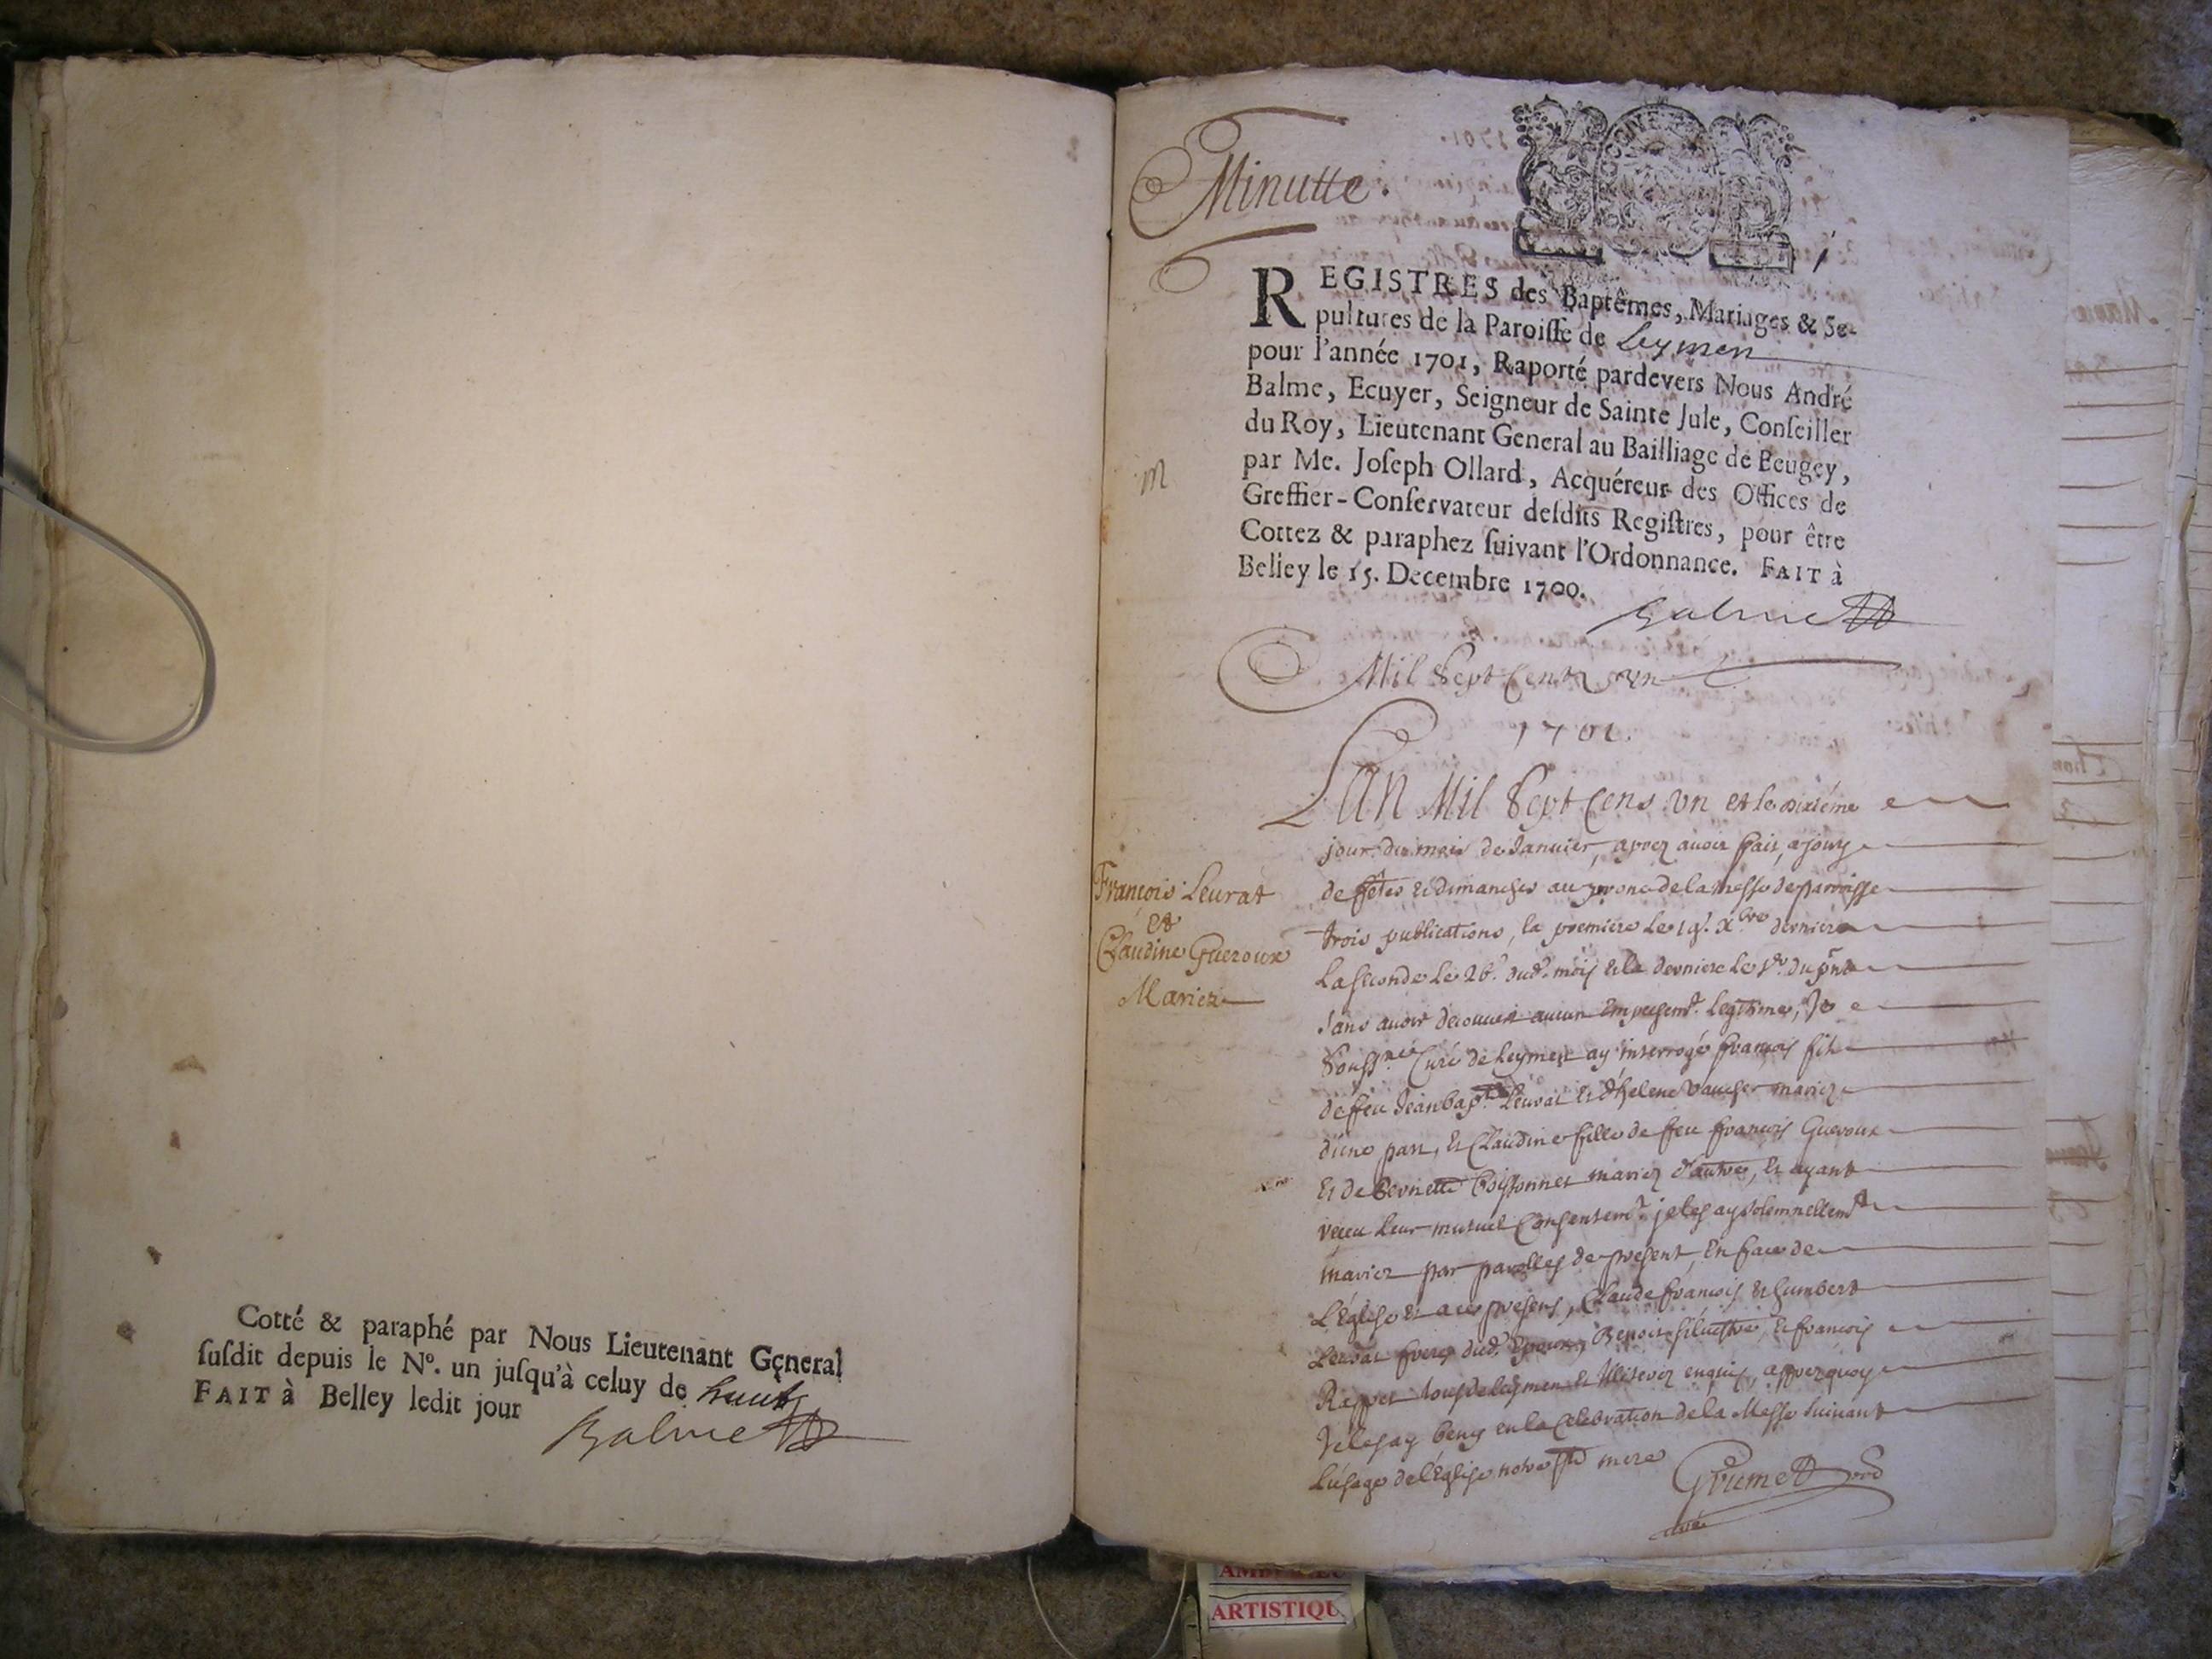 Cotté & paraphé par Nous Lieutenant General
ſuſdit depuis le Nº. un juſqu'à celuy de huit
FAIT à Belley ledit jour
Balme
Minutte.
REGISTRES des Baptêmes, Mariages & Se-
pultures de la Paroiſſe de Leymen
pour l'année 1701, Raporté pardevers Nous André
Balme, Ecuyer, Seigneur de Sainte Jule, Conſeiller
du Roy, Lieutenant General au Bailliage de Beugey,
par Me. Joſeph Ollard, Acquéreur des Offices de
Greffier-Conſervateur deſdits Regiſtres, pour être
Cottez & paraphez ſuivant l'Ordonnance. FAIT à
Belley le 15. Decembre 1700.
Balme
Mil Sept Cent Un
1701.
François Leurat
et
Claudine Gueroux
Mariez
L'an Mil Sept Cens Un et le dixiéme
jour du mois de Janvier, aprez avoir fait, a jours
de fêtes et dimanches au prone de la messe de parroisse
trois publications, la premiere le 19e. Xbre dernier
La seconde le 26e. dud. mois et la derniere le du pnt
sans avoir decouvert aucun empeschemt. legitime, Je
Soussné Curé de Leymen ay interrogé françois fils
de feu Jean bapt. Leurat et d'helene vaucher mariez
d'une part, et Claudine fille de feu françois Gueroux
et de Boissonnet mariez d'autre, et ayant
receu leur mutuel Consentemt. je les ay solemnellemt
mariez par parolles de present, en face de
L'Eglise et a ce presens, Claude françois et humbert
Leurat freres dud. Epoux, Benoit Siluestre, et françois
Rappet tous de Leymen et Illiterez enquis, apprez quoy
Je les ay beny en la Celebration de la Messe suivant
l'usage de l'Eglise notre ste mere
Grumet
curé
AMBERIEU
ARTISTIQU